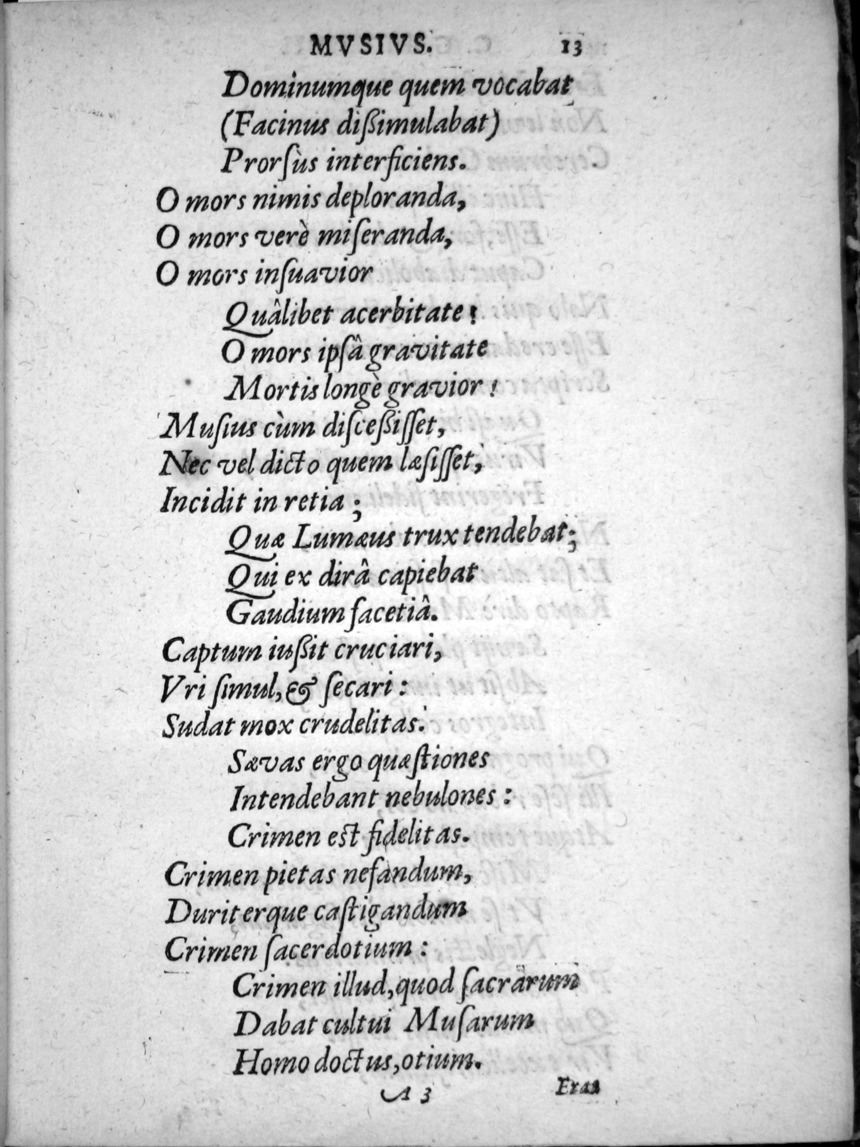 MVSIVS. 13
Dominumque quem vocabat
(Facinus dißimulabat)
Prorſùs interficiens.
O mors nimis deploranda,
O mors verè miſeranda,
O mors inſuavior
Quâlibet acerbitate!
O mors ipſâ gravitate
Mortis longè gravior!
Muſius cùm diſceßiſſet,
Nec vel dicto quem læſiſſet,
Incidit in retia;
Quæ Lumæus trux tendebat;
Qui ex dirâ capiebat
Gaudium facetiâ.
Captum iußit cruciari,
Vri ſimul, & ſecari:
Sudat mox crudelitas.
Sævas ergo quæſtiones
Intendebant nebulones:
Crimen eſt fidelitas.
Crimen pietas nefandum,
Duriterque caſtigandum
Crimen ſacerdotium:
Crimen illud, quod ſacrarum
Dabat cultui Muſarum
Homo doctus, otium.
A 3 Eras